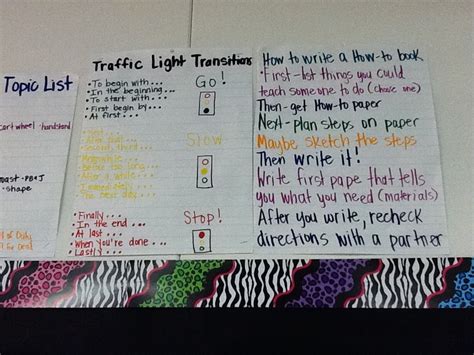 Topic List
cartwheel · handstand
PB+J
· shape
Traffic Light Transitions
· To begin with...
· In the beginning...
· To start with...
· First begin by...
Go!
· Next...
· After that...
second, third...
· Meanwhile...
· Before too long...
· After a while...
The next day...
Slow
· Finally...
· In the end...
· At last...
· When you're done...
· Lastly...
Stop!
How to write a How-to book
· First-list things you could
teach someone to do (choose one)
Then-get How-to paper
Next-plan steps on paper
Maybe sketch the steps
Then write it!
Write first page that tells
you what you need (materials)
After you write, recheck
directions with a partner